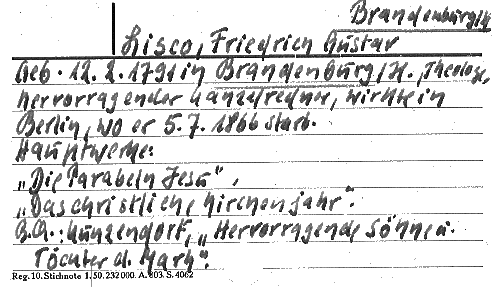 Brandenburg/H
Lisco, Friedrich Gustav
Geb. 12. 2. 1791 in Brandenburg/H., Theologe,
hervorragender Kanzelredner, wirkte in
Berlin, wo er 5. 7. 1866 starb.
Hauptwerke:
„Die Parabeln Jesu",
„Das christliche Kirchenjahr".
B.A.: Kunzendorf, „Hervorragende Söhne u.
Töchter d. Mark".
Reg. 10. Stichnote 1. 50. 232000. A. 803. S. 4062